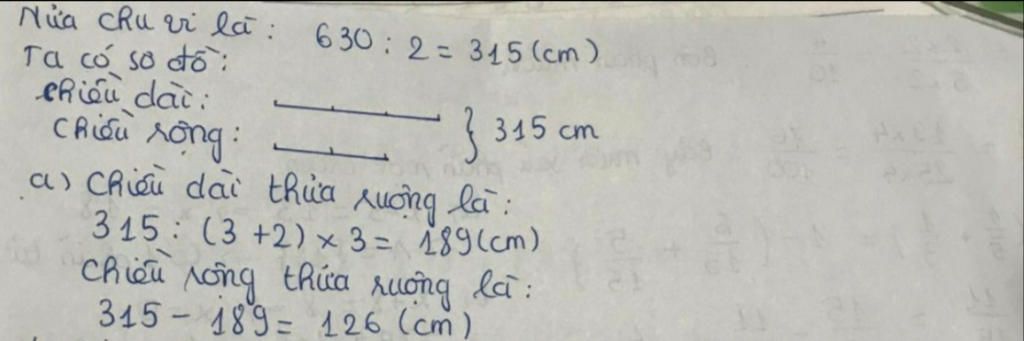 Nửa chu vi là: 630 : 2 = 315 (cm)
Ta có sơ đồ:
chiều dài:
chiều rộng: } 315 cm
a) chiều dài thửa ruộng là:
315 : (3 + 2) × 3 = 189 (cm)
chiều rộng thửa ruộng là:
315 - 189 = 126 (cm)